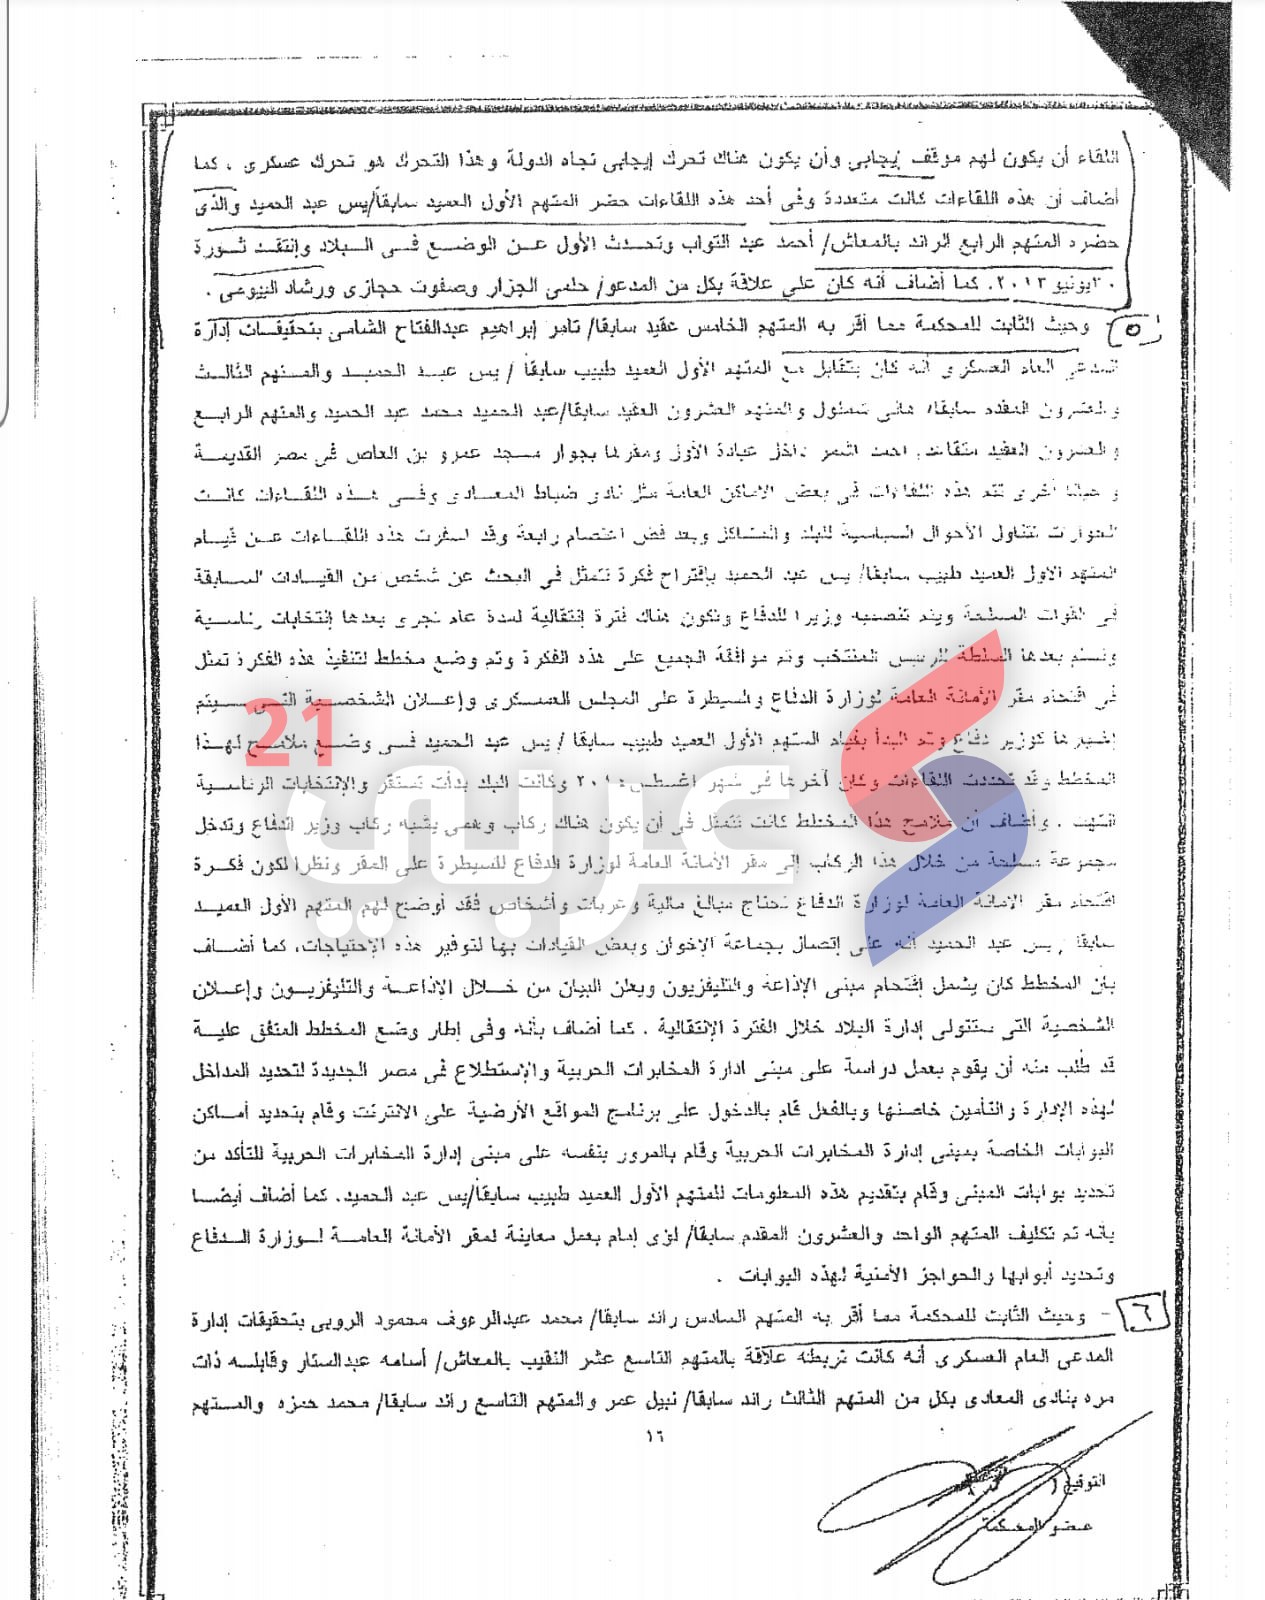 اللقاء أن يكون لهم موقف إيجابى وأن يكون هناك تحرك إيجابى تجاه الدولة وهذا التحرك هو تحرك عسكرى ، كما
أضاف أن هذه اللقاءات كانت متعددة وفى أحد هذه اللقاءات حضر المتهم الأول العميد سابقاً/يس عبد الحميد والذى
حضره المتهم الرابع الرائد بالمعاش/ أحمد عبد التواب وتحدث الأول عن الوضع فى البلاد وإنتقد ثورة
٣٠يونيو ٢٠١٣. كما أضاف أنه كان على علاقة بكل من المدعو/ حلمى الجزار وصفوت حجازى ورشاد البيومى .
٥ وحيث الثابت للمحكمة مما أقر به المتهم الخامس عقيد سابقا/ تامر إبراهيم عبدالفتاح الشامى بتحقيقات إدارة
المدعى العام العسكرى أنه كان يتقابل مع المتهم الأول العميد طبيب سابقا / يس عبد الحميد والمتهم الثالث
والعشرون المقدم سابقا/ هانى والمتهم العشرون العقيد سابقا/عبد الحميد محمد عبد الحميد والمتهم الرابع
والعشرون العقيد متقاعد/ احمد داخل عيادة الأول ومقرها بجوار مسجد عمرو بن العاص فى مصر القديمة
وأحيانا أخرى تتم هذه اللقاءات فى بعض الاماكن العامة مثل نادى ضباط المعادى وفى هذه اللقاءات كانت
الحوارات تتناول الأحوال السياسية للبلد والمشاكل وبعد فض اعتصام رابعة وقد اسفرت هذه اللقاءات عن قيام
المتهم الاول العميد طبيب سابقا/ يس عبد الحميد بإقتراح فكرة تتمثل فى البحث عن شخص من القيادات السابقة
فى القوات المسلحة ويتم تنصيبه وزيرا للدفاع وتكون هناك فترة إنتقالية لمدة عام تجرى بعدها إنتخابات رئاسية
وتسلم بعدها السلطة للرئيس المنتخب وتم موافقة الجميع على هذه الفكرة وتم وضع مخطط لتنفيذ هذه الفكرة تمثل
فى اقتحام مقر الأمانة العامة لوزارة الدفاع والسيطرة على المجلس العسكرى وإعلان الشخصية التى سيتم
إختيارها كوزير دفاع وتم البدأ بقيام المتهم الأول العميد طبيب سابقا / يس عبد الحميد فى وضع ملامح لهذا
المخطط وقد تحددت اللقاءات وكان آخرها فى شهر اغسطس وكانت البلد بدأت تستقر والإنتخابات الرئاسية
انتهت . وأضاف أن ملامح هذا المخطط كانت تتمثل فى أن يكون هناك ركاب وهمى يشبه ركاب وزير الدفاع وتدخل
مجموعة مسلحة من خلال هذا الركاب إلى مقر الأمانة العامة لوزارة الدفاع للسيطرة على المقر ونظرا لكون فكرة
اقتحام مقر الامانة العامة لوزارة الدفاع تحتاج مبالغ مالية وعربات وأشخاص فقد أوضح لهم المتهم الأول العميد
سابقا / يس عبد الحميد أنه على إتصال بجماعة الإخوان وبعض القيادات بها لتوفير هذه الإحتياجات، كما أضاف
بأن المخطط كان يشمل إقتحام مبنى الإذاعة والتليفزيون ويعلن البيان من خلال الإذاعة والتليفزيون وإعلان
الشخصية التى ستتولى إدارة البلاد خلال الفترة الإنتقالية . كما أضاف بأنه وفى إطار وضع المخطط المتفق علية
قد طلب منه أن يقوم بعمل دراسة على مبنى ادارة المخابرات الحربية والإستطلاع فى مصر الجديدة لتحديد المداخل
لهذه الإدارة والتأمين خاصتها وبالفعل قام بالدخول على برنامج المواقع الأرضية على الانترنت وقام بتحديد أماكن
البوابات الخاصة بمبنى إدارة المخابرات الحربية وقام بالمرور بنفسه على مبنى إدارة المخابرات الحربية للتأكد من
تحديد بوابات المبنى وقام بتقديم هذه المعلومات للمتهم الأول العميد طبيب سابقا/يس عبد الحميد. كما أضاف أيضا
بأنه تم تكليف المتهم الواحد والعشرون المقدم سابقا/ لؤى إمام بعمل معاينة لمقر الأمانة العامة لوزارة الدفاع
وتحديد أبوابها والحواجز الأمنية لهذه البوابات .
٦ - وحيث الثابت للمحكمة مما أقر به المتهم السادس رائد سابقا/ محمد عبدالرءوف محمود الروبى بتحقيقات إدارة
المدعى العام العسكرى أنه كانت تربطه علاقة بالمتهم التاسع عشر النقيب بالمعاش/ أسامه عبدالستار وقابلسه ذات
مره بنادى المعادى بكل من المتهم الثالث رائد سابقا/ نبيل عمر والمتهم التاسع رائد سابقا/ محمد حمزه والمتهم
١٦
التوقيع (
عضو المحكمة
عربي 21